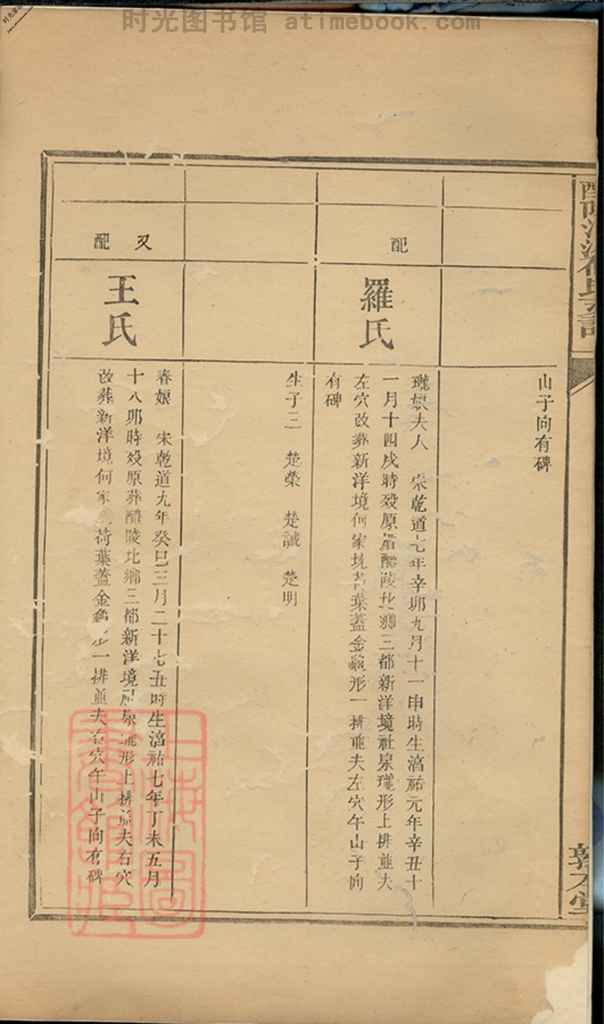 时光图书馆 atimebook.com
山子向有碑
配
羅氏
瓏娘夫人 宋乾道七年辛卯九月十一申時生淳祐元年辛丑十
一月十四戌時歿原葬醴陵北鄉三都新洋境社泉瓏形上排並夫
左穴改葬新洋境何家境荷葉蓋金龜形一排並夫左穴午山子向
有碑
生子三 楚榮 楚誠 楚明
又配
王氏
春娘 宋乾道九年癸巳三月二十七丑時生淳祐七年丁未五月
十八卯時歿原葬醴陵北鄉三都新洋境社泉瓏形上排並夫右穴
改葬新洋境何家荷葉蓋金龜形一排並夫右穴午山子向有碑